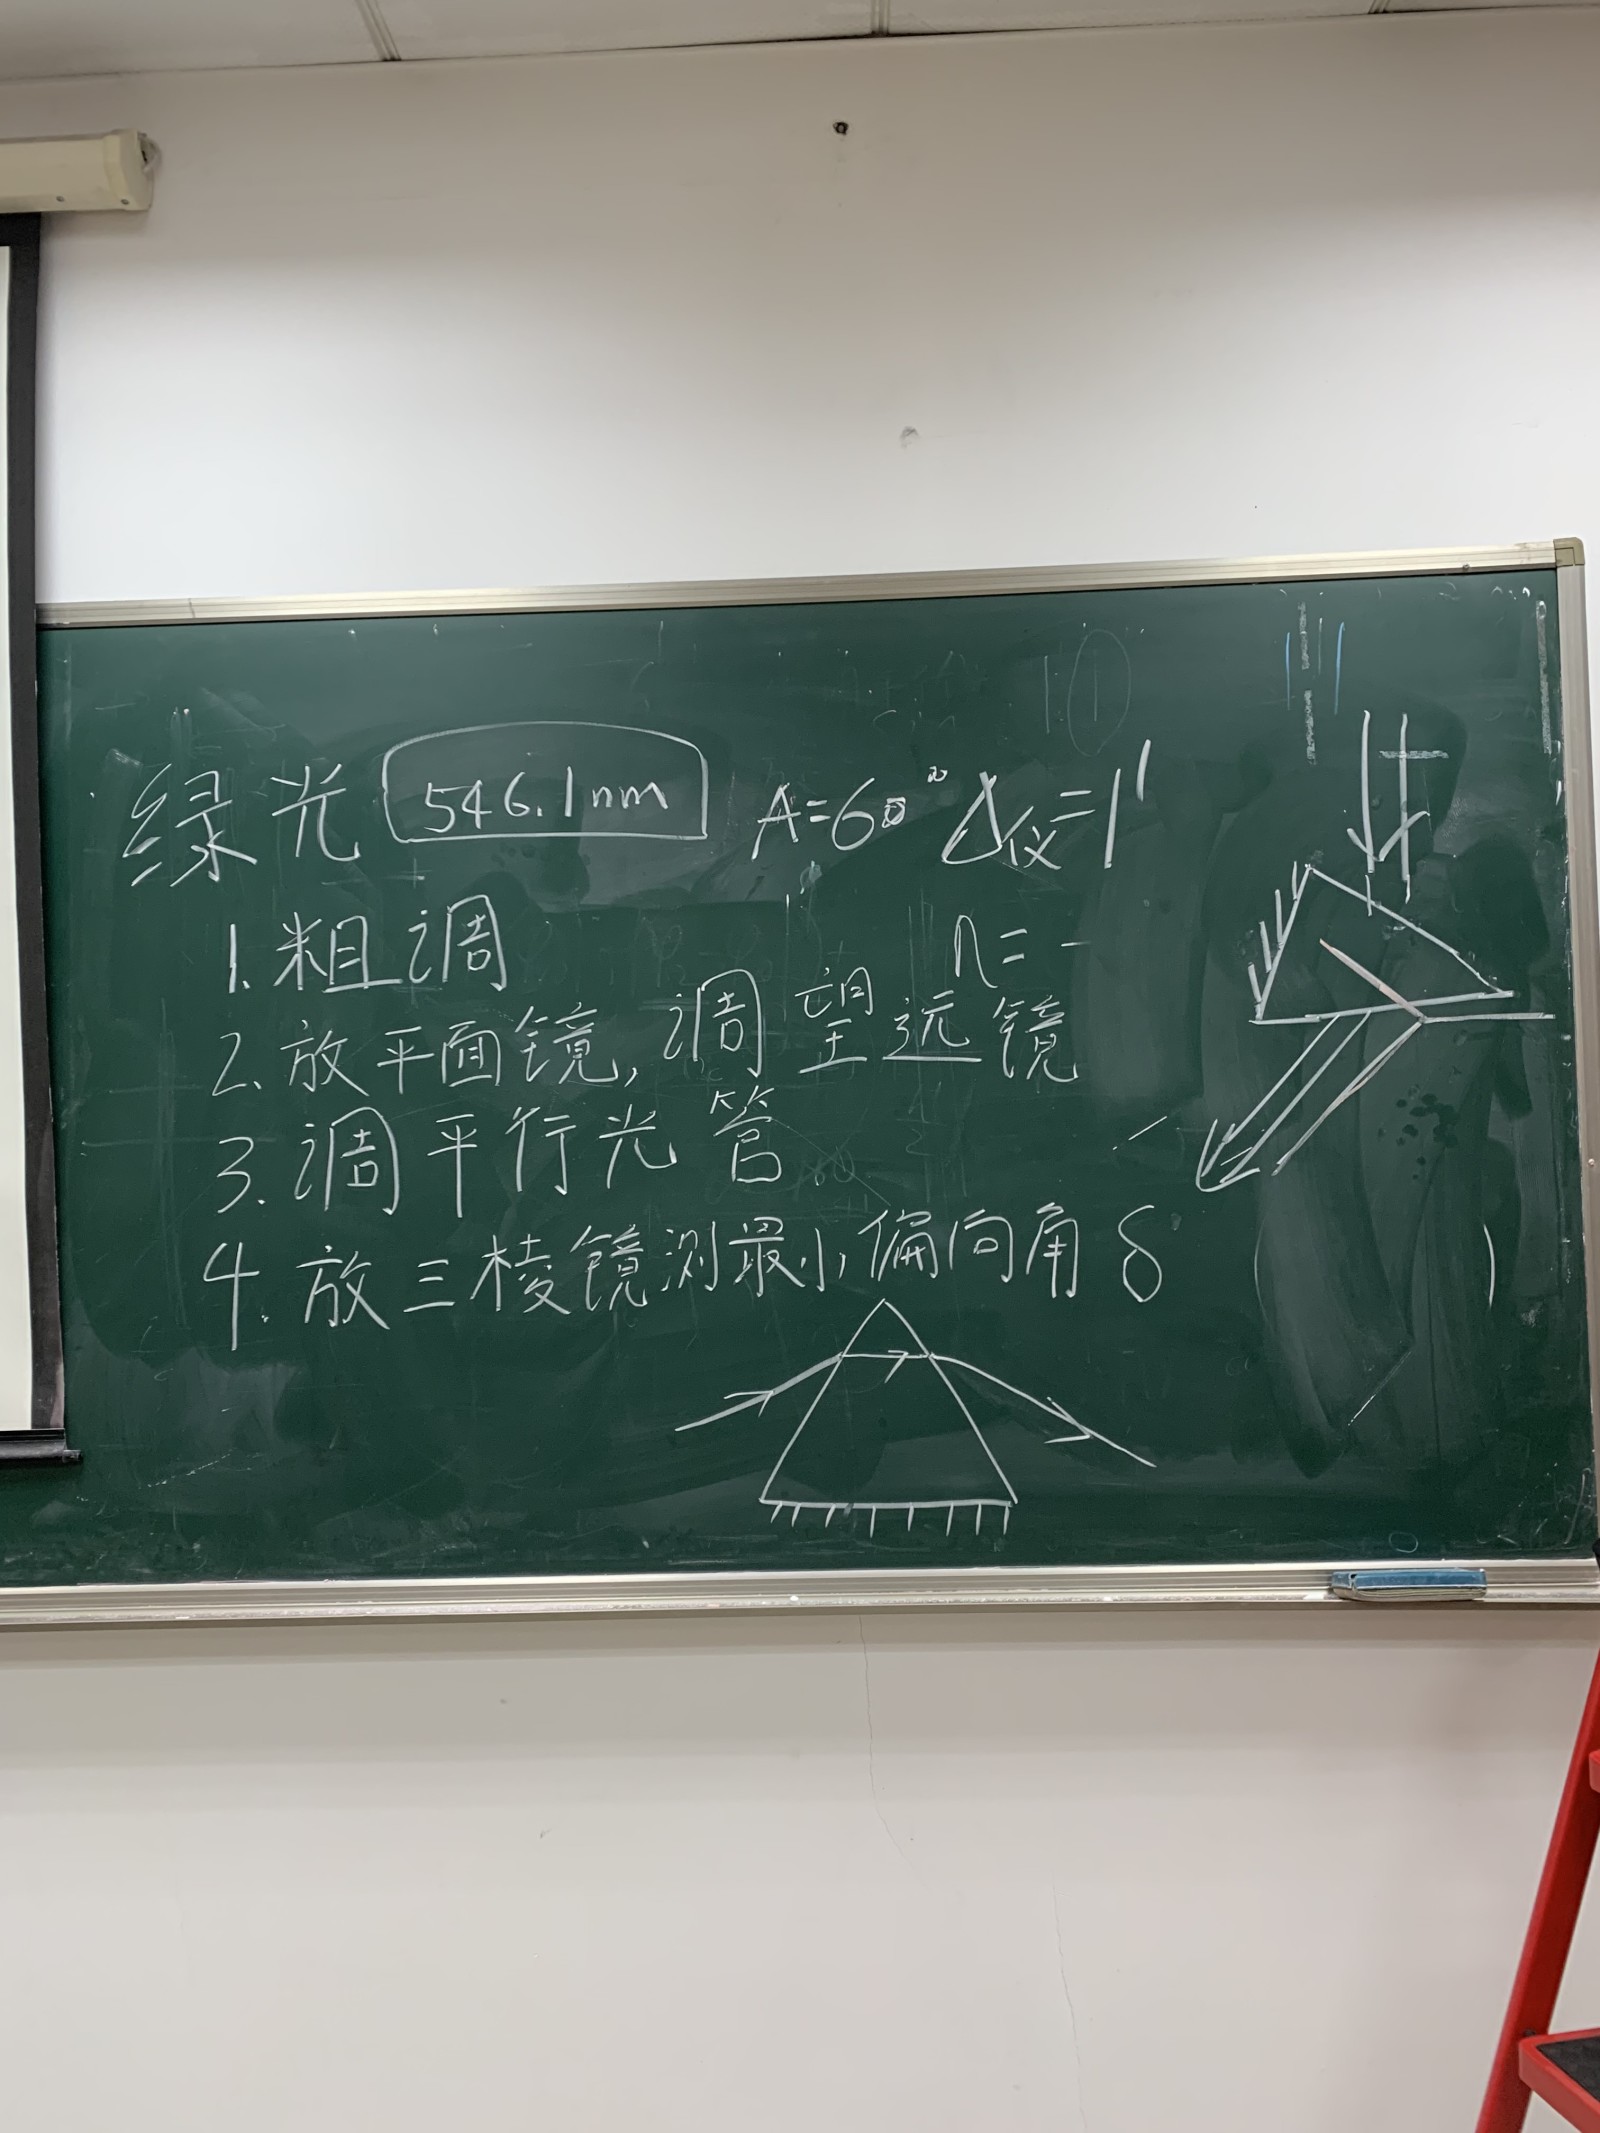 绿光 546.1nm A=60° Δ仪=1′
1.粗调
n=
2.放平面镜,调望远镜
3.调平行光管
4.放三棱镜测最小偏向角δ